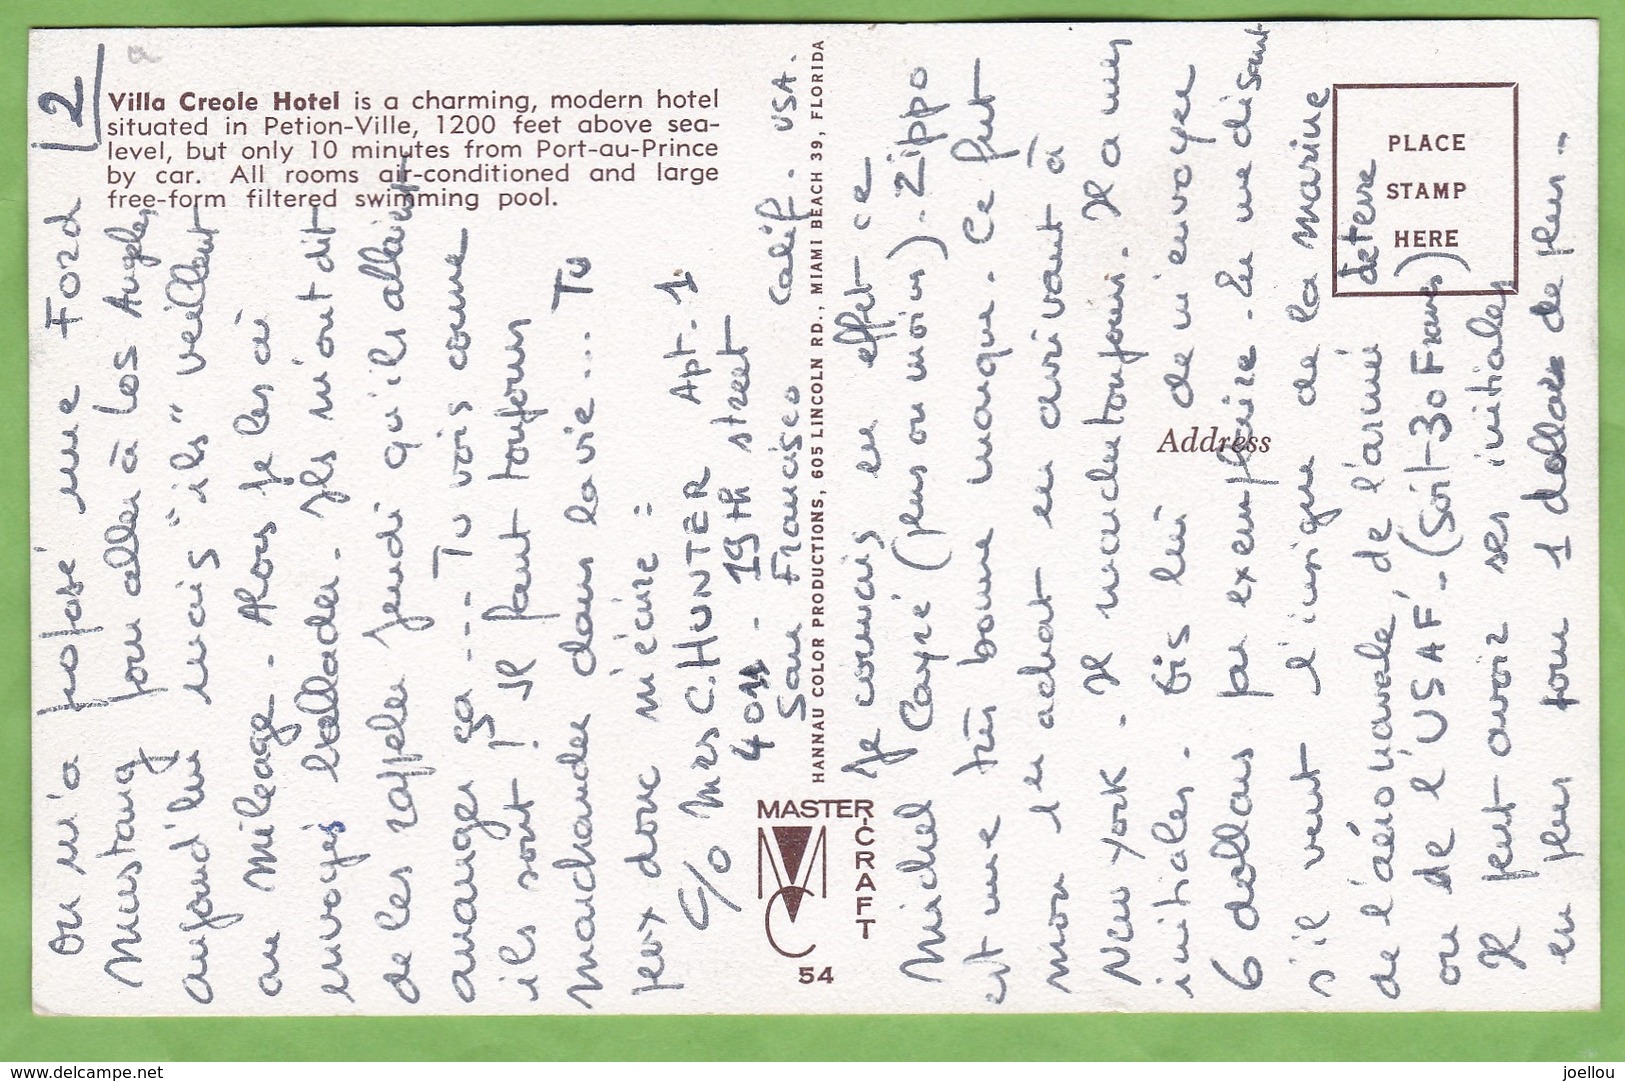 2
Villa Creole Hotel is a charming, modern hotel
situated in Petion-Ville, 1200 feet above sea-
level, but only 10 minutes from Port-au-Prince
by car. All rooms air-conditioned and large
free-form filtered swimming pool.
on m'a proposé une Ford
Mustang pour aller à Los Angeles
aujourd'hui mais "ils" veillent
au mileage. Alors je les ai
envoyés ballader. Ils m'ont dit
de les rappeler jeudi qu'ils allaient
arranger ça.... Tu vois comme
ils sont! Il faut toujours
marchander dans la vie... Tu
peux donc m'écrire =
c/o Mrs C. HUNTER Apt. 1
4011 - 19th street
San Francisco Calif. USA.
HANNAU COLOR PRODUCTIONS, 605 LINCOLN RD., MIAMI BEACH 39, FLORIDA
MASTER
CRAFT
MC
54
PLACE
STAMP
HERE
Address
Je connais en effet ce
Michel Cayré (plus ou moins). Zippo
est une très bonne marque. Ce fut
mon 1er achat en arrivant à
New York. Il marche toujours. Il a mes
initiales. Dis lui de m'envoyer
6 dollars par exemplaire. En me disant
s'il veut l'insigne de la marine
de l'aéronavale, de l'armée de terre
ou de l'USAF. (Soit 30 Francs)
Il peut avoir ses initiales
en plus pour 1 dollar de plus..
joellou
www.delcampe.net